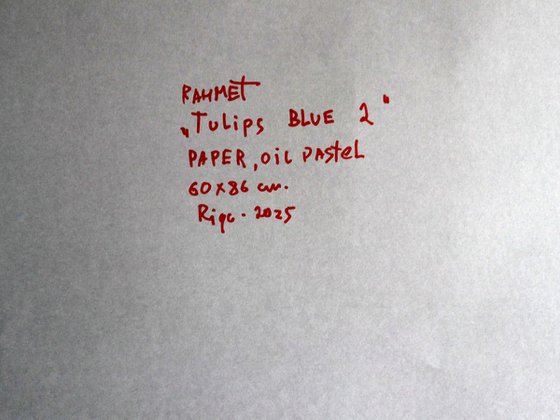 RAHMET
„Tulips BLUE 2"
PAPER, oil pastel
60x86 cm.
Riga. 2025